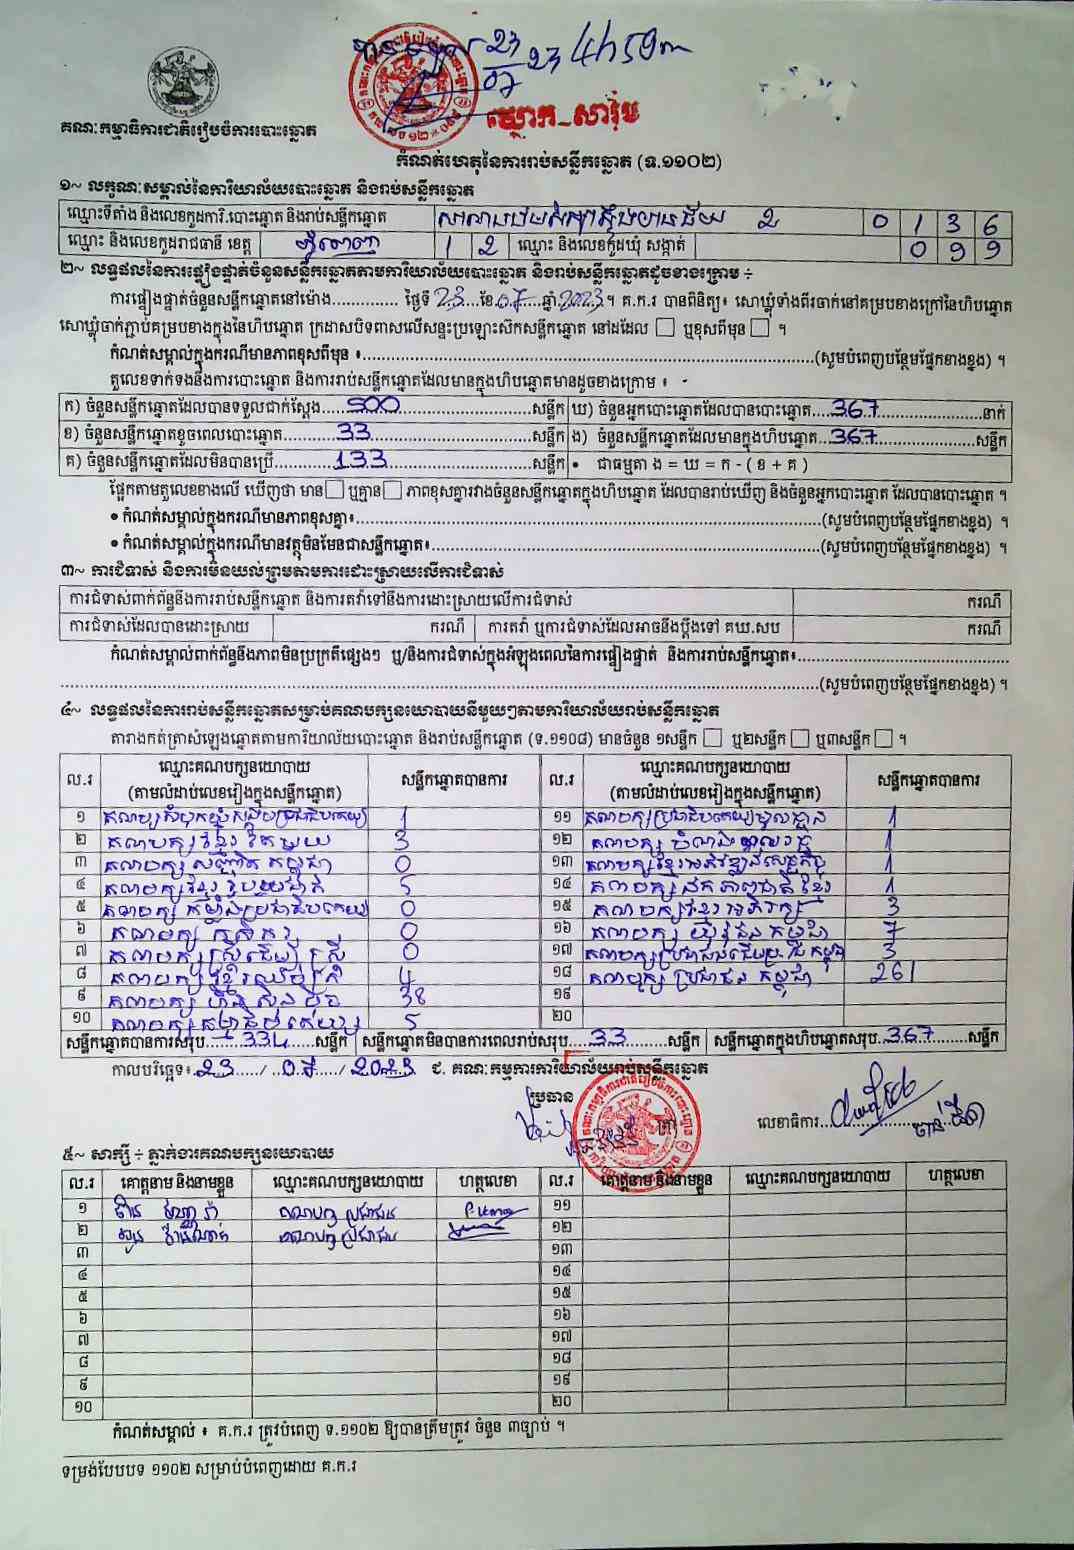 បានទទួល 23/07 23 4h 59m
ឃ្លោក_សារ៉ុម
គណៈកម្មាធិការជាតិរៀបចំការបោះឆ្នោត
កំណត់ហេតុនៃការរាប់សន្លឹកឆ្នោត (ទ.១១០២)
១~ លក្ខណៈសម្គាល់នៃការិយាល័យបោះឆ្នោត និងរាប់សន្លឹកឆ្នោត
ឈ្មោះទីតាំង និងលេខកូដការិ.បោះឆ្នោត និងរាប់សន្លឹកឆ្នោត 2 0 1 3 6
ឈ្មោះ និងលេខកូដរាជធានី ខេត្ត ភ្នំពេញ 1 2 ឈ្មោះ និងលេខកូដឃុំ សង្កាត់ 0 9 9
២~ លទ្ធផលនៃការផ្ទៀងផ្ទាត់ចំនួនសន្លឹកឆ្នោតតាមការិយាល័យបោះឆ្នោត និងរាប់សន្លឹកឆ្នោតដូចខាងក្រោម ÷
ការផ្ទៀងផ្ទាត់ចំនួនសន្លឹកឆ្នោតនៅម៉ោង.............. ថ្ងៃទី 23 ខែ 07 ឆ្នាំ 2023 ។ គ.ក.រ បានពិនិត្យ៖ សោឃ្លុំទាំងពីរចាក់នៅគម្របខាងក្រៅនៃហិបឆ្នោត
សោឃ្លុំចាក់ភ្ជាប់គម្របខាងក្នុងនៃហិបឆ្នោត ក្រដាសបិទពាសលើសន្ទះប្រឡោះសិកសន្លឹកឆ្នោត នៅដដែល ☐ ឬខុសពីមុន ☐ ។
កំណត់សម្គាល់ក្នុងករណីមានភាពខុសពីមុន ៖..............(សូមបំពេញបន្ថែមផ្នែកខាងខ្នង) ។
តួលេខទាក់ទងនឹងការបោះឆ្នោត និងការរាប់សន្លឹកឆ្នោតដែលមានក្នុងហិបឆ្នោតមានដូចខាងក្រោម ៖
ក) ចំនួនសន្លឹកឆ្នោតដែលបានទទួលជាក់ស្តែង 500 សន្លឹក ឃ) ចំនួនអ្នកបោះឆ្នោតដែលបានបោះឆ្នោត 367 នាក់
ខ) ចំនួនសន្លឹកឆ្នោតខូចពេលបោះឆ្នោត 33 សន្លឹក ង) ចំនួនសន្លឹកឆ្នោតដែលមានក្នុងហិបឆ្នោត 367 សន្លឹក
គ) ចំនួនសន្លឹកឆ្នោតដែលមិនបានប្រើ 133 សន្លឹក • ជាធម្មតា ង = ឃ = ក - ( ខ + គ )
ផ្អែកតាមតួលេខខាងលើ ឃើញថា មាន ☐ ឬគ្មាន ☐ ភាពខុសគ្នារវាងចំនួនសន្លឹកឆ្នោតក្នុងហិបឆ្នោត ដែលបានរាប់ឃើញ និងចំនួនអ្នកបោះឆ្នោត ដែលបានបោះឆ្នោត ។
• កំណត់សម្គាល់ក្នុងករណីមានភាពខុសគ្នា៖..............(សូមបំពេញបន្ថែមផ្នែកខាងខ្នង) ។
• កំណត់សម្គាល់ក្នុងករណីមានវត្ថុមិនមែនជាសន្លឹកឆ្នោត៖..............(សូមបំពេញបន្ថែមផ្នែកខាងខ្នង) ។
៣~ ការជំទាស់ និងការមិនយល់ព្រមតាមការដោះស្រាយលើការជំទាស់
ការជំទាស់ពាក់ព័ន្ធនឹងការរាប់សន្លឹកឆ្នោត និងការតវ៉ាទៅនឹងការដោះស្រាយលើការជំទាស់ ករណី
ការជំទាស់ដែលបានដោះស្រាយ ករណី ការតវ៉ា ឬការជំទាស់ដែលអាចនឹងប្តឹងទៅ គឃ.សប ករណី
កំណត់សម្គាល់ពាក់ព័ន្ធនឹងភាពមិនប្រក្រតីផ្សេងៗ ឬ/និងការជំទាស់ក្នុងអំឡុងពេលនៃការផ្ទៀងផ្ទាត់ និងការរាប់សន្លឹកឆ្នោត៖..............
..............(សូមបំពេញបន្ថែមផ្នែកខាងខ្នង) ។
៤~ លទ្ធផលនៃការរាប់សន្លឹកឆ្នោតសម្រាប់គណបក្សនយោបាយនីមួយៗតាមការិយាល័យរាប់សន្លឹកឆ្នោត
តារាងកត់ត្រាសំឡេងឆ្នោតតាមការិយាល័យបោះឆ្នោត និងរាប់សន្លឹកឆ្នោត (ទ.១១០៨) មានចំនួន ១សន្លឹក ☐ ឬ២សន្លឹក ☐ ឬ៣សន្លឹក ☐ ។
ល.រ ឈ្មោះគណបក្សនយោបាយ (តាមលំដាប់លេខរៀងក្នុងសន្លឹកឆ្នោត) សន្លឹកឆ្នោតបានការ ល.រ ឈ្មោះគណបក្សនយោបាយ (តាមលំដាប់លេខរៀងក្នុងសន្លឹកឆ្នោត) សន្លឹកឆ្នោតបានការ
១ គណបក្សសំបុកឃ្មុំសង្គមប្រជាធិបតេយ្យ 1 ១១ គណបក្សប្រជាធិបតេយ្យមូលដ្ឋាន 1
២ គណបក្សខ្មែររួបរួម 3 ១២ គណបក្ស 1
៣ គណបក្ស កម្ពុជា 0 ១៣ គណបក្សខ្មែរអភិវឌ្ឍន៍សេដ្ឋកិច្ច 1
៤ គណបក្សខ្មែររួបរួមជាតិ 5 ១៤ គណបក្ស ឯកភាពជាតិខ្មែរ 1
៥ គណបក្ស កម្លាំងប្រជាធិបតេយ្យ 0 ១៥ គណបក្សខ្មែរអភិរក្ស 3
៦ គណបក្ស កសិករ 0 ១៦ គណបក្ស យុវជនកម្ពុជា 7
៧ គណបក្សស្រីដើម្បីស្រី 0 ១៧ គណបក្ស 3
៨ គណបក្សខ្មែរឈប់ក្រ 4 ១៨ គណបក្ស ប្រជាជន កម្ពុជា 261
៩ គណបក្ស ហ៊្វុនស៊ិនប៉ិច 38 ១៩
១០ គណបក្សធម្មាធិបតេយ្យ 5 ២០
សន្លឹកឆ្នោតបានការសរុប 334 សន្លឹក សន្លឹកឆ្នោតមិនបានការពេលរាប់សរុប 33 សន្លឹក សន្លឹកឆ្នោតក្នុងហិបឆ្នោតសរុប 367 សន្លឹក
កាលបរិច្ឆេទ៖ 23 / 07 / 2023 ជ. គណៈកម្មការការិយាល័យរាប់សន្លឹកឆ្នោត
ប្រធាន
លេខាធិការ
៥~ សាក្សី ÷ ភ្នាក់ងារគណបក្សនយោបាយ
ល.រ គោត្តនាម និងនាមខ្លួន ឈ្មោះគណបក្សនយោបាយ ហត្ថលេខា ល.រ គោត្តនាម និងនាមខ្លួន ឈ្មោះគណបក្សនយោបាយ ហត្ថលេខា
១ គណបក្ស ប្រជាជន ១១
២ គណបក្ស ប្រជាជន ១២
៣ ១៣
៤ ១៤
៥ ១៥
៦ ១៦
៧ ១៧
៨ ១៨
៩ ១៩
១០ ២០
កំណត់សម្គាល់ ៖ គ.ក.រ ត្រូវបំពេញ ទ.១១០២ ឱ្យបានត្រឹមត្រូវ ចំនួន ៣ច្បាប់ ។
ទម្រង់បែបបទ ១១០២ សម្រាប់បំពេញដោយ គ.ក.រ